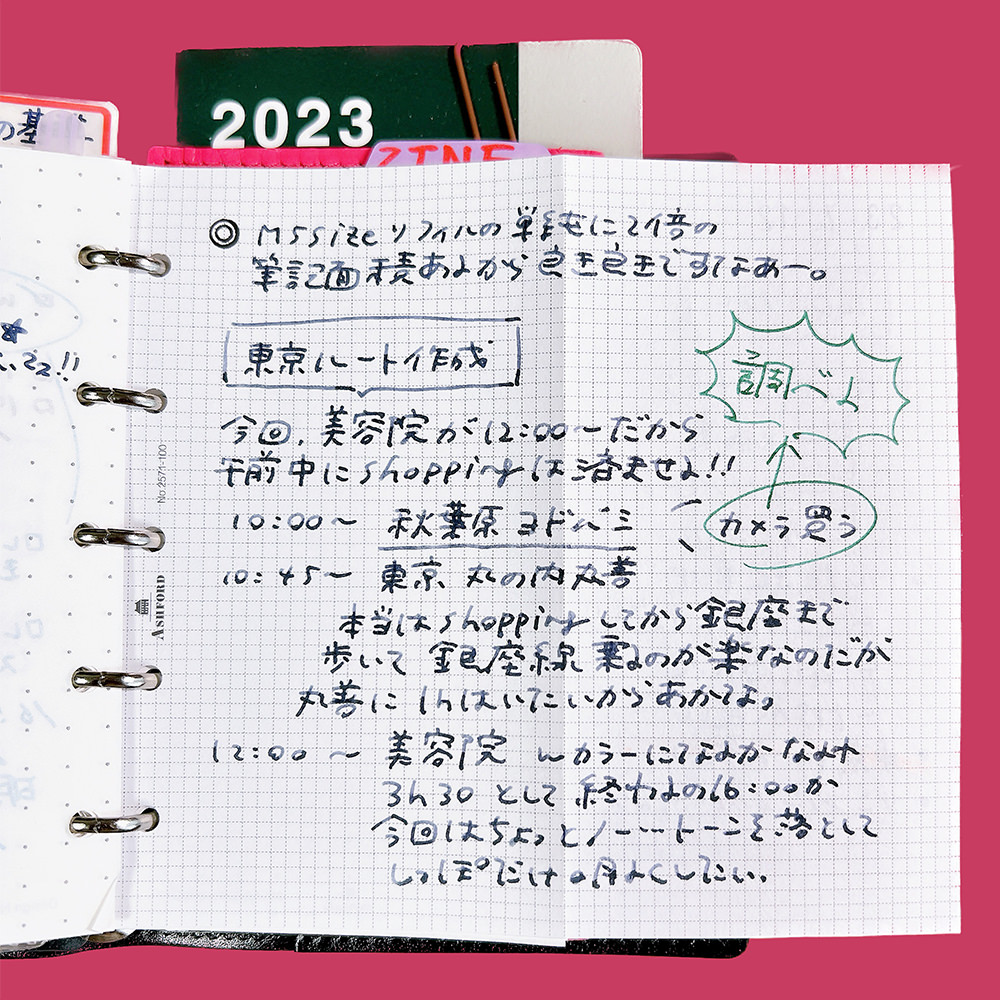 2023
ZINE
の基
◎ M5sizeリフィルの単純に2倍の
筆記面積あるから良き良きですなあー。
東京ルート作成
調べる
カメラ買う
今回、美容院が12:00〜だから
午前中にshoppingは済ませる!!
10:00〜 秋葉原ヨドバシ
10:45〜 東京 丸の内丸善
本当はshoppingしてから銀座まで
歩いて 銀座線 乗るのが楽なのだが
丸善に1hはいたいからあかてよ。
12:00 〜 美容院 カラーにてなるかなるや
3h30 として 終わるの16:00か
今回はちょっと トーンを落として
しっぽだけ明るくしたい。
No.2571-100
ASHFORD